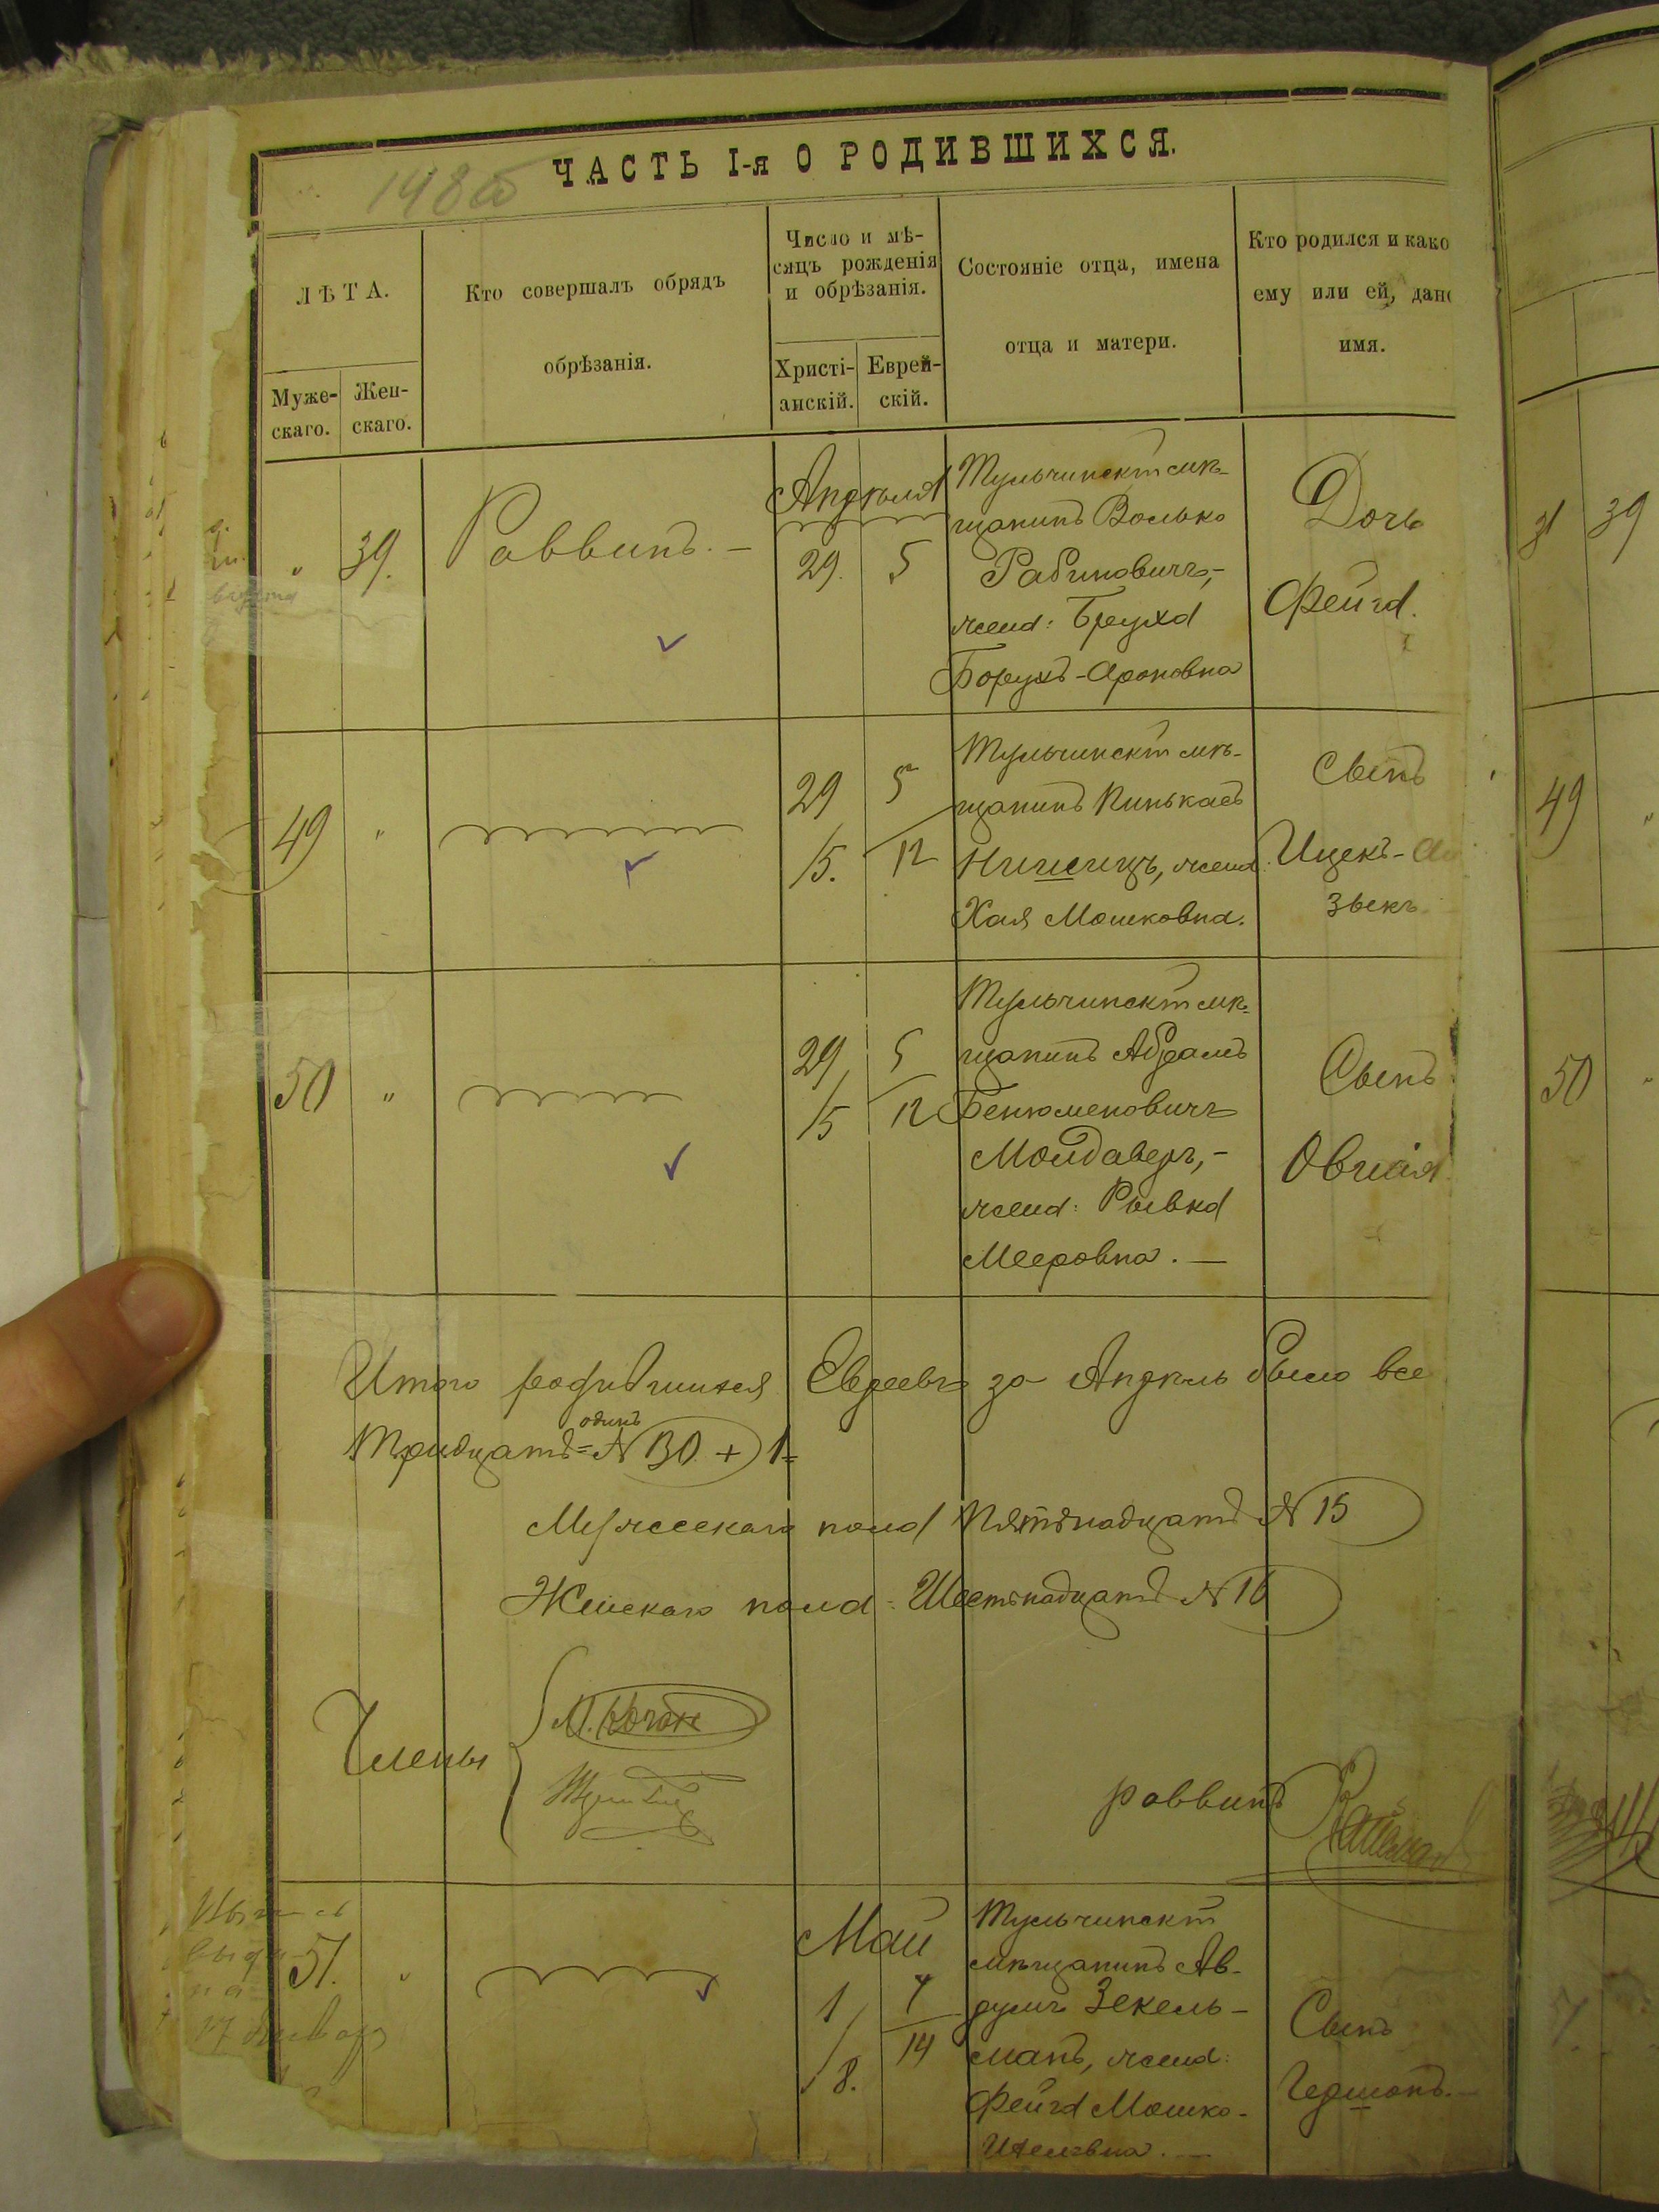 148об
ЧАСТЬ I-я О РОДИВШИХСЯ.
ЛѢТА.
Муже-
скаго.
Жен-
скаго.
Кто совершалъ обрядъ
обрѣзанія.
Число и мѣ-
сяцъ рожденія
и обрѣзанія.
Христі-
анскій.
Еврей-
скій.
Состояніе отца, имена
отца и матери.
Кто родился и како
ему или ей, дано
имя.
" 39.
Раввинъ. —
Апрѣля
29. 5
Тульчинскій мѣ-
щанинъ Волько
Рабиновичъ, -
жена: Бруха
Борухъ-Ароновна
Дочь
Фейга.
31 39
49 "
29 5
5. 12
Тульчинскій мѣ-
щанинъ Пинькасъ
Нишицъ, жена:
Хая Мошковна.
Сынъ
Ицекъ-Ай
зыкъ
49 "
50 "
29 5
5 12
Тульчинскій мѣ-
щанинъ Абрамъ
Бенюменовичъ
Молдаверъ, -
жена: Рывка
Мееровна. —
Сынъ
Овшія.
50 "
Итого родившихся Евреевъ за Апрѣль было все
одинъ
Тридцать = N 30 + 1 =
Мужескаго пола Пятьнадцать N 15
Женскаго пола: Шестьнадцать N 16
Члены
М. Коганъ
раввинъ
51. "
Май
1 7
8. 14
Тульчинскій
мѣщанинъ Ав-
румъ Зекель-
манъ, жена:
Фейга Мошко-
Ицелевна. —
Сынъ
Гершонъ. —
17 Января
51.